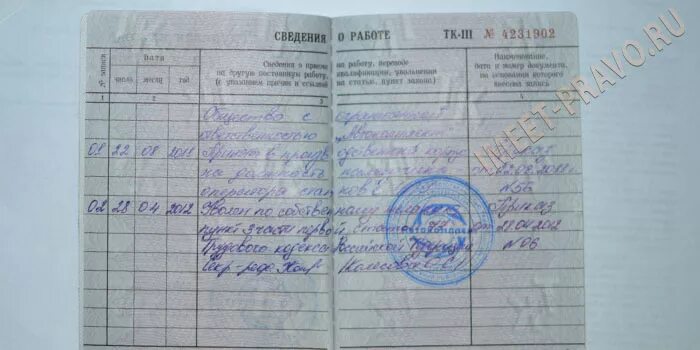 СВЕДЕНИЯ О РАБОТЕ ТК-III № 4231902
№ записи
Дата
число месяц год
Сведения о приеме на работу, переводе
на другую постоянную работу, квалификации, увольнении
(с указанием причин и ссылкой на статью, пункт закона)
Наименование,
дата и номер документа,
на основании которого
внесена запись
1 2 3 4
Общество с ограниченной
ответственностью
01 22 08 2011 Принят в Приказ
на должность от 22.08.2011
оператора станков с №56
02 28 04 2012 Уволен по собственному желанию Приказ
пункт 3 части первой статьи от 28.04.2012
Трудового кодекса Российской Федерации №06
IMEET-PRAVO.RU